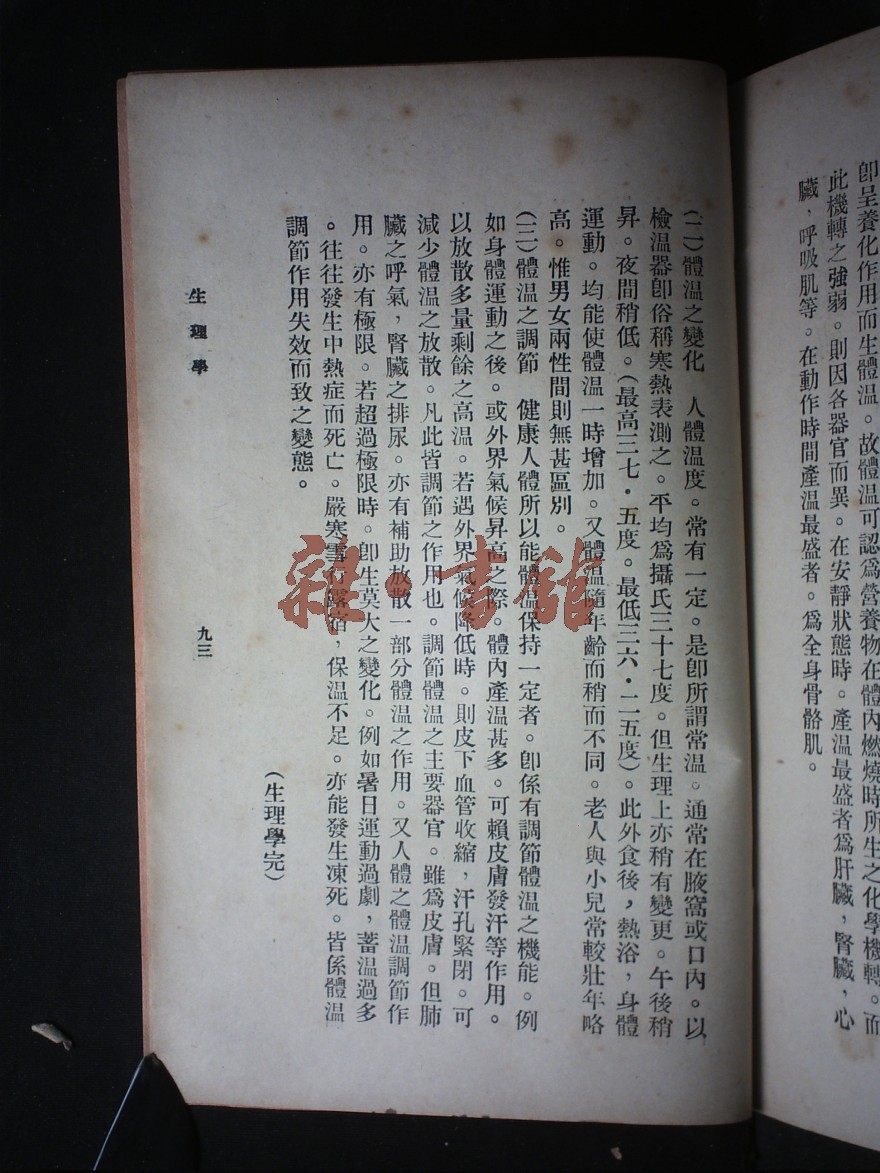 卽呈養化作用而生體溫。故體溫可認爲營養物在體內燃燒時所生之化學機轉。而
此機轉之強弱。則因各器官而異。在安靜狀態時。產溫最盛者爲肝臟，腎臟，心
臟，呼吸肌等。在動作時間產溫最盛者。爲全身骨骼肌。
(二)體溫之變化　人體溫度。常有一定。是卽所謂常溫。通常在腋窩或口內。以
檢溫器卽俗稱寒熱表測之。平均爲攝氏三十七度。但生理上亦稍有變更。午後稍
昇。夜間稍低。(最高三七・五度。最低三六・二五度)。此外食後，熱浴，身體
運動。均能使體溫一時增加。又體溫隨年齡而稍而不同。老人與小兒常較壯年略
高。惟男女兩性間則無甚區別。
(三)體溫之調節　健康人體所以能體溫保持一定者。卽係有調節體溫之機能。例
如身體運動之後。或外界氣候昇高之際。體內產溫甚多。可賴皮膚發汗等作用。
以放散多量剩餘之高溫。若遇外界氣候降低時。則皮下血管收縮，汗孔緊閉。可
減少體溫之放散。凡此皆調節之作用也。調節體溫之主要器官。雖爲皮膚。但肺
臟之呼氣，腎臟之排尿。亦有補助放散一部分體溫之作用。又人體之體溫調節作
用。亦有極限。若超過極限時。卽生莫大之變化。例如暑日運動過劇，蓄溫過多
。往往發生中熱症而死亡。嚴寒雪行露宿，保溫不足。亦能發生凍死。皆係體溫
調節作用失效而致之變態。
(生理學完)
生理學
九三
雜・書館